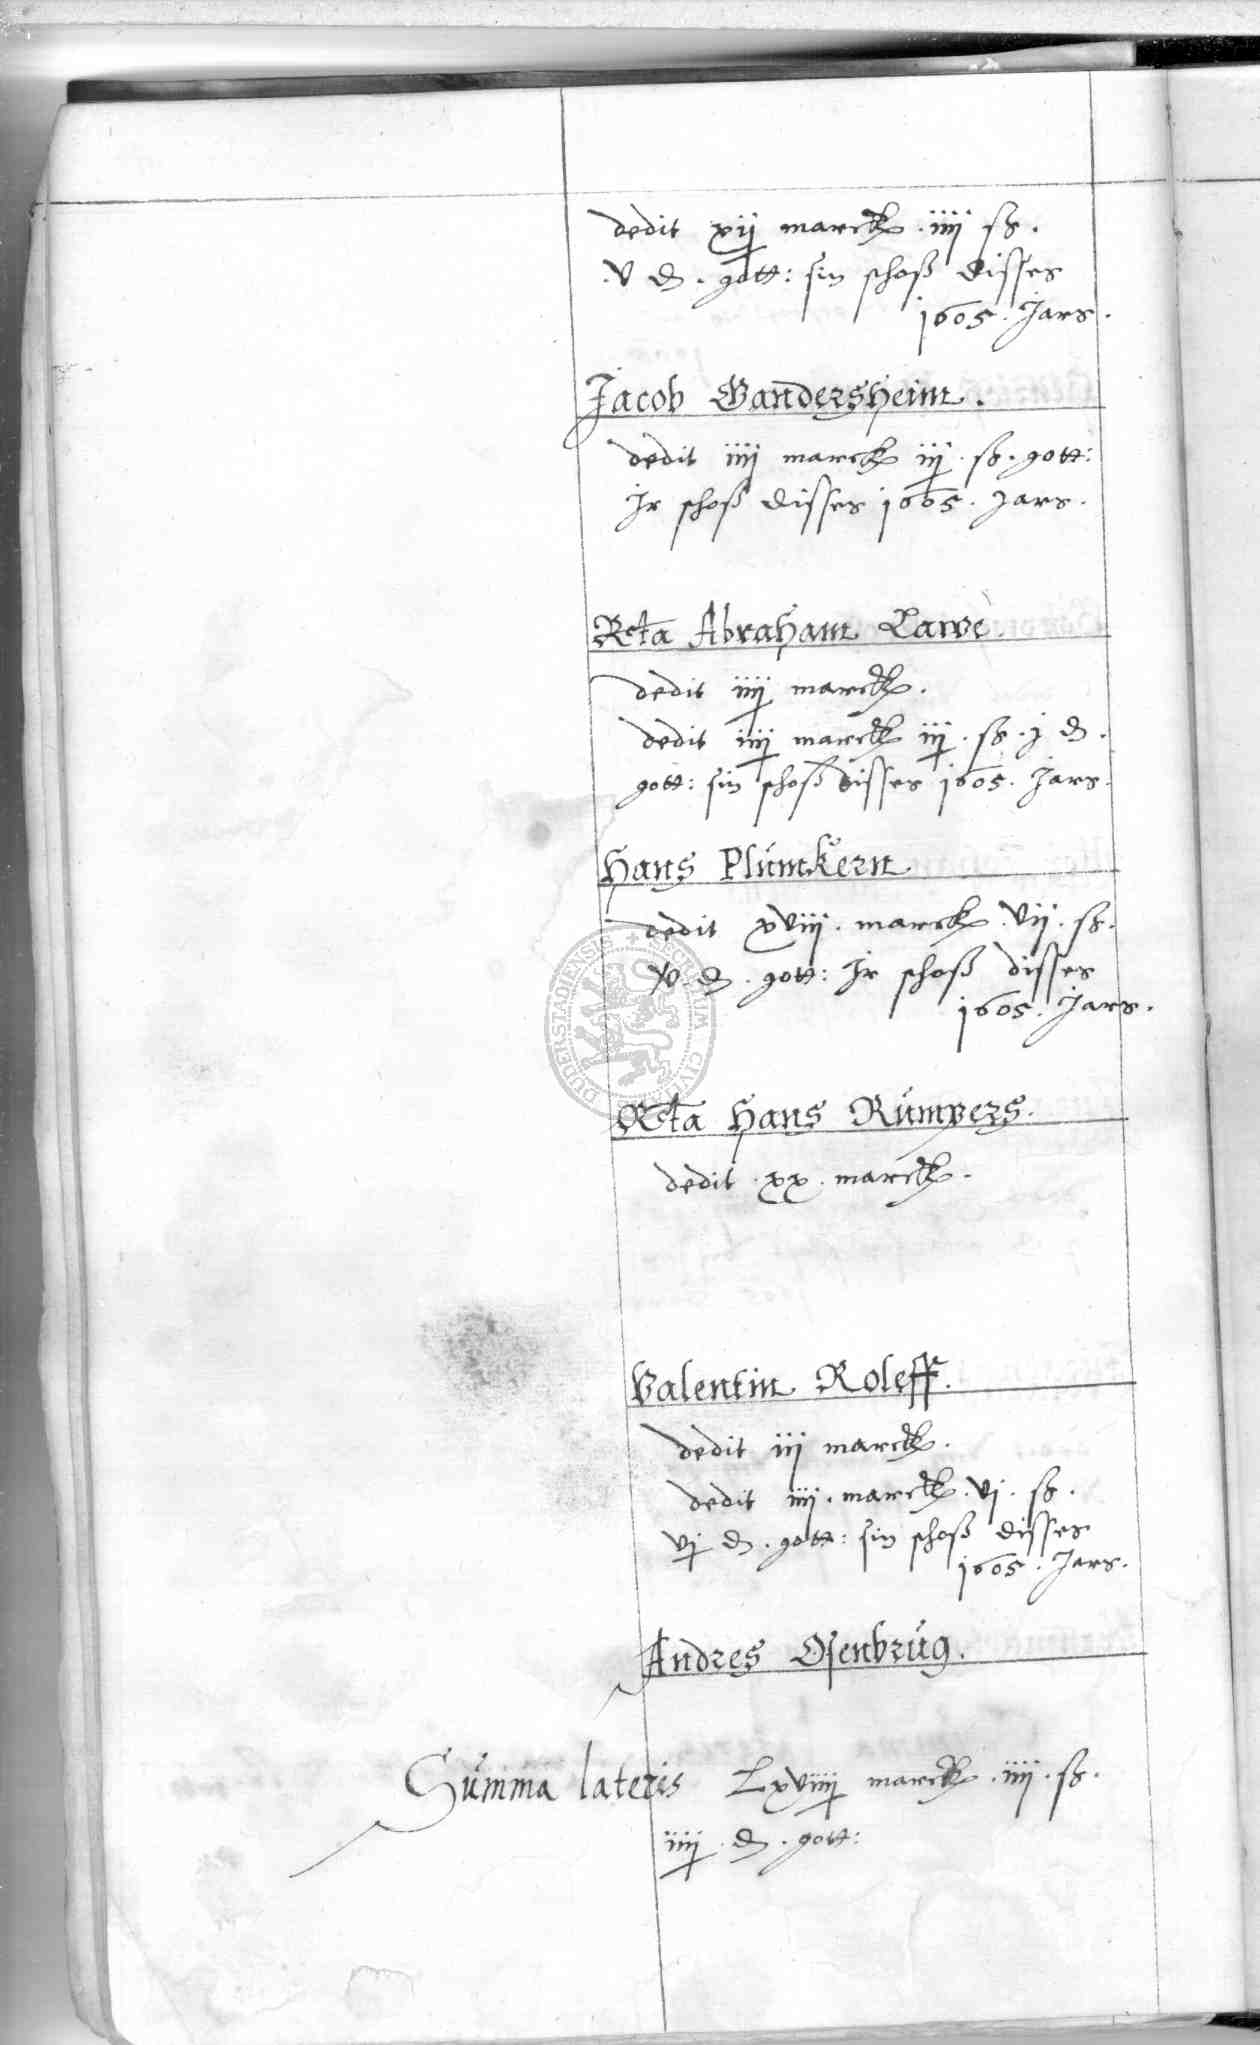 dedit xij marck . iiij ß .
. v ₰ . gott : sin schoß disses
1605 . Jars .
Jacob Gandersheim .
dedit iiij marck iij . ß . gott :
Jr schoß disses 1605 . Jars .
Rcta Abraham Lawe .
dedit iiij marck .
dedit iiij marck iij . ß . j ₰ .
gott : sin schoß disses 1605 . Jars .
Hans Plümkern
dedit xviij . marck . vij . ß .
v . ₰ . gott : Jr schoß disses
1605 . Jars .
DUDERSTADIENSIS + SECRETUM CIVITATIS
Rcta Hans Rümpers .
dedit . xx . marck .
Valentin Roleff .
dedit iij marck .
dedit iiij . marck . vj . ß .
vj ₰ . gott : sin schoß disses
1605 . Jars .
Andres Osenbrüg .
Sümma lateris Lxviiij marck . iiij . ß .
iiij . ₰ . gott :